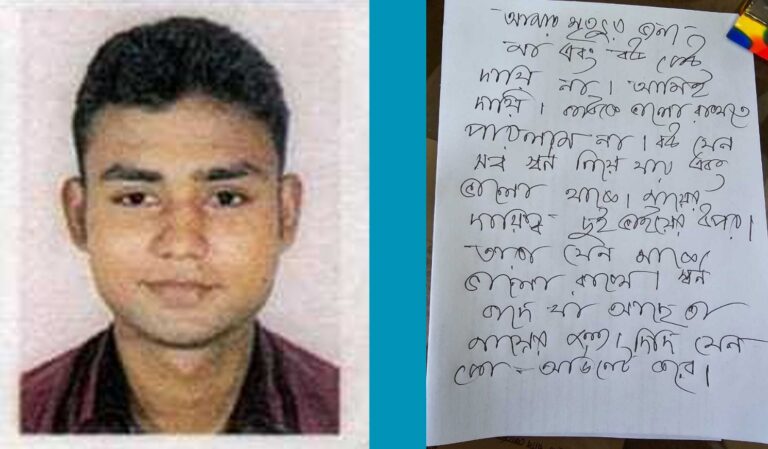 আমার মৃত্যুর জন্য
মা এবং বউ কেউ
দায়ি না। আমিই
দায়ি। কাউকে ভালো রাখতে
পারলাম না। বউ যেন
সব স্বর্ণ নিয়ে যায় এবং
ভালো থাকে। মায়ের
দায়িত্ব দুই ভাইয়ের উপর।
তারা যেন মাকে
ভালো রাখে। স্বর্ণ
বাদে যা আছে তা
মায়ের জন্য। দিদি যেন
কো-অর্ডিনেট করে।